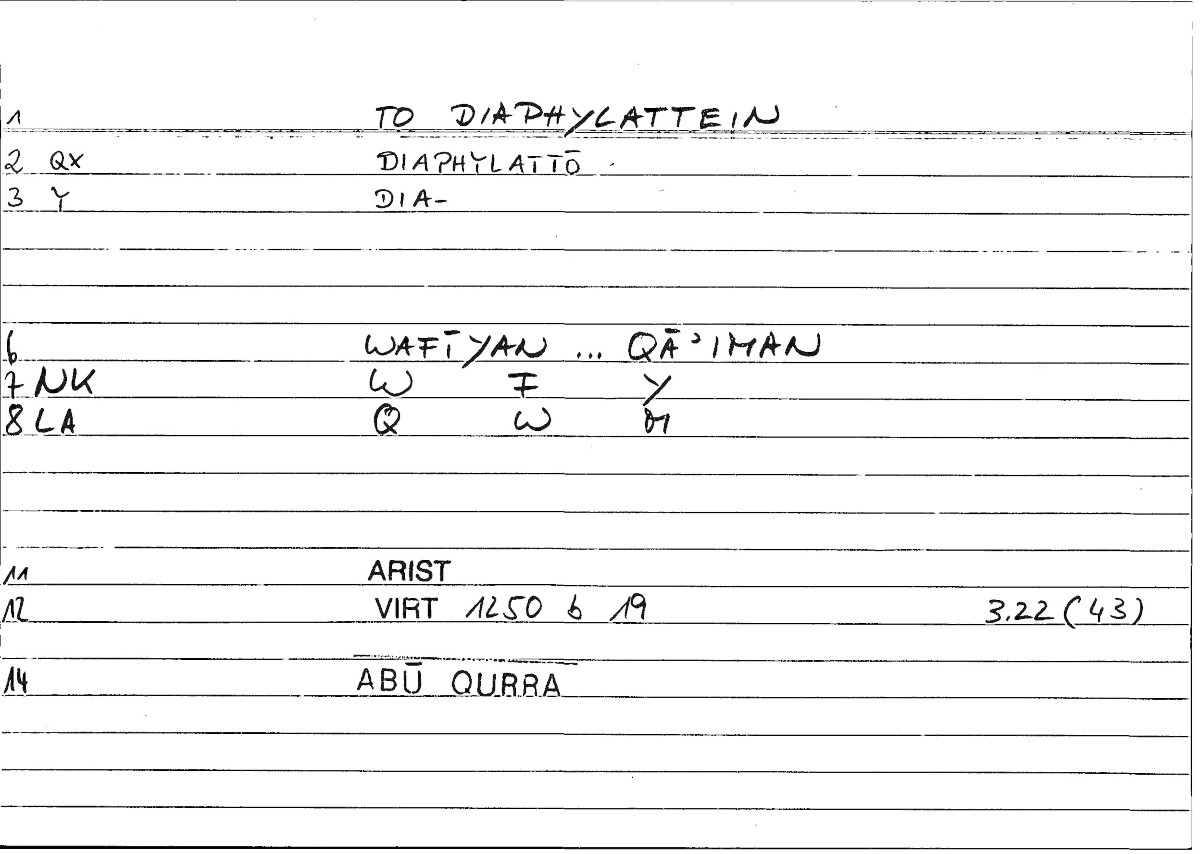 1 TO DIAPHYLATTEIN
2 QX DIAPHYLATTŌ
3 Y DIA-
6 WAFĪYAN ... QĀʾIMAN
7 NK W F Y
8 LA Q W M
11 ARIST
12 VIRT 1250 b 19 3.22 (43)
14 ABŪ QURRA